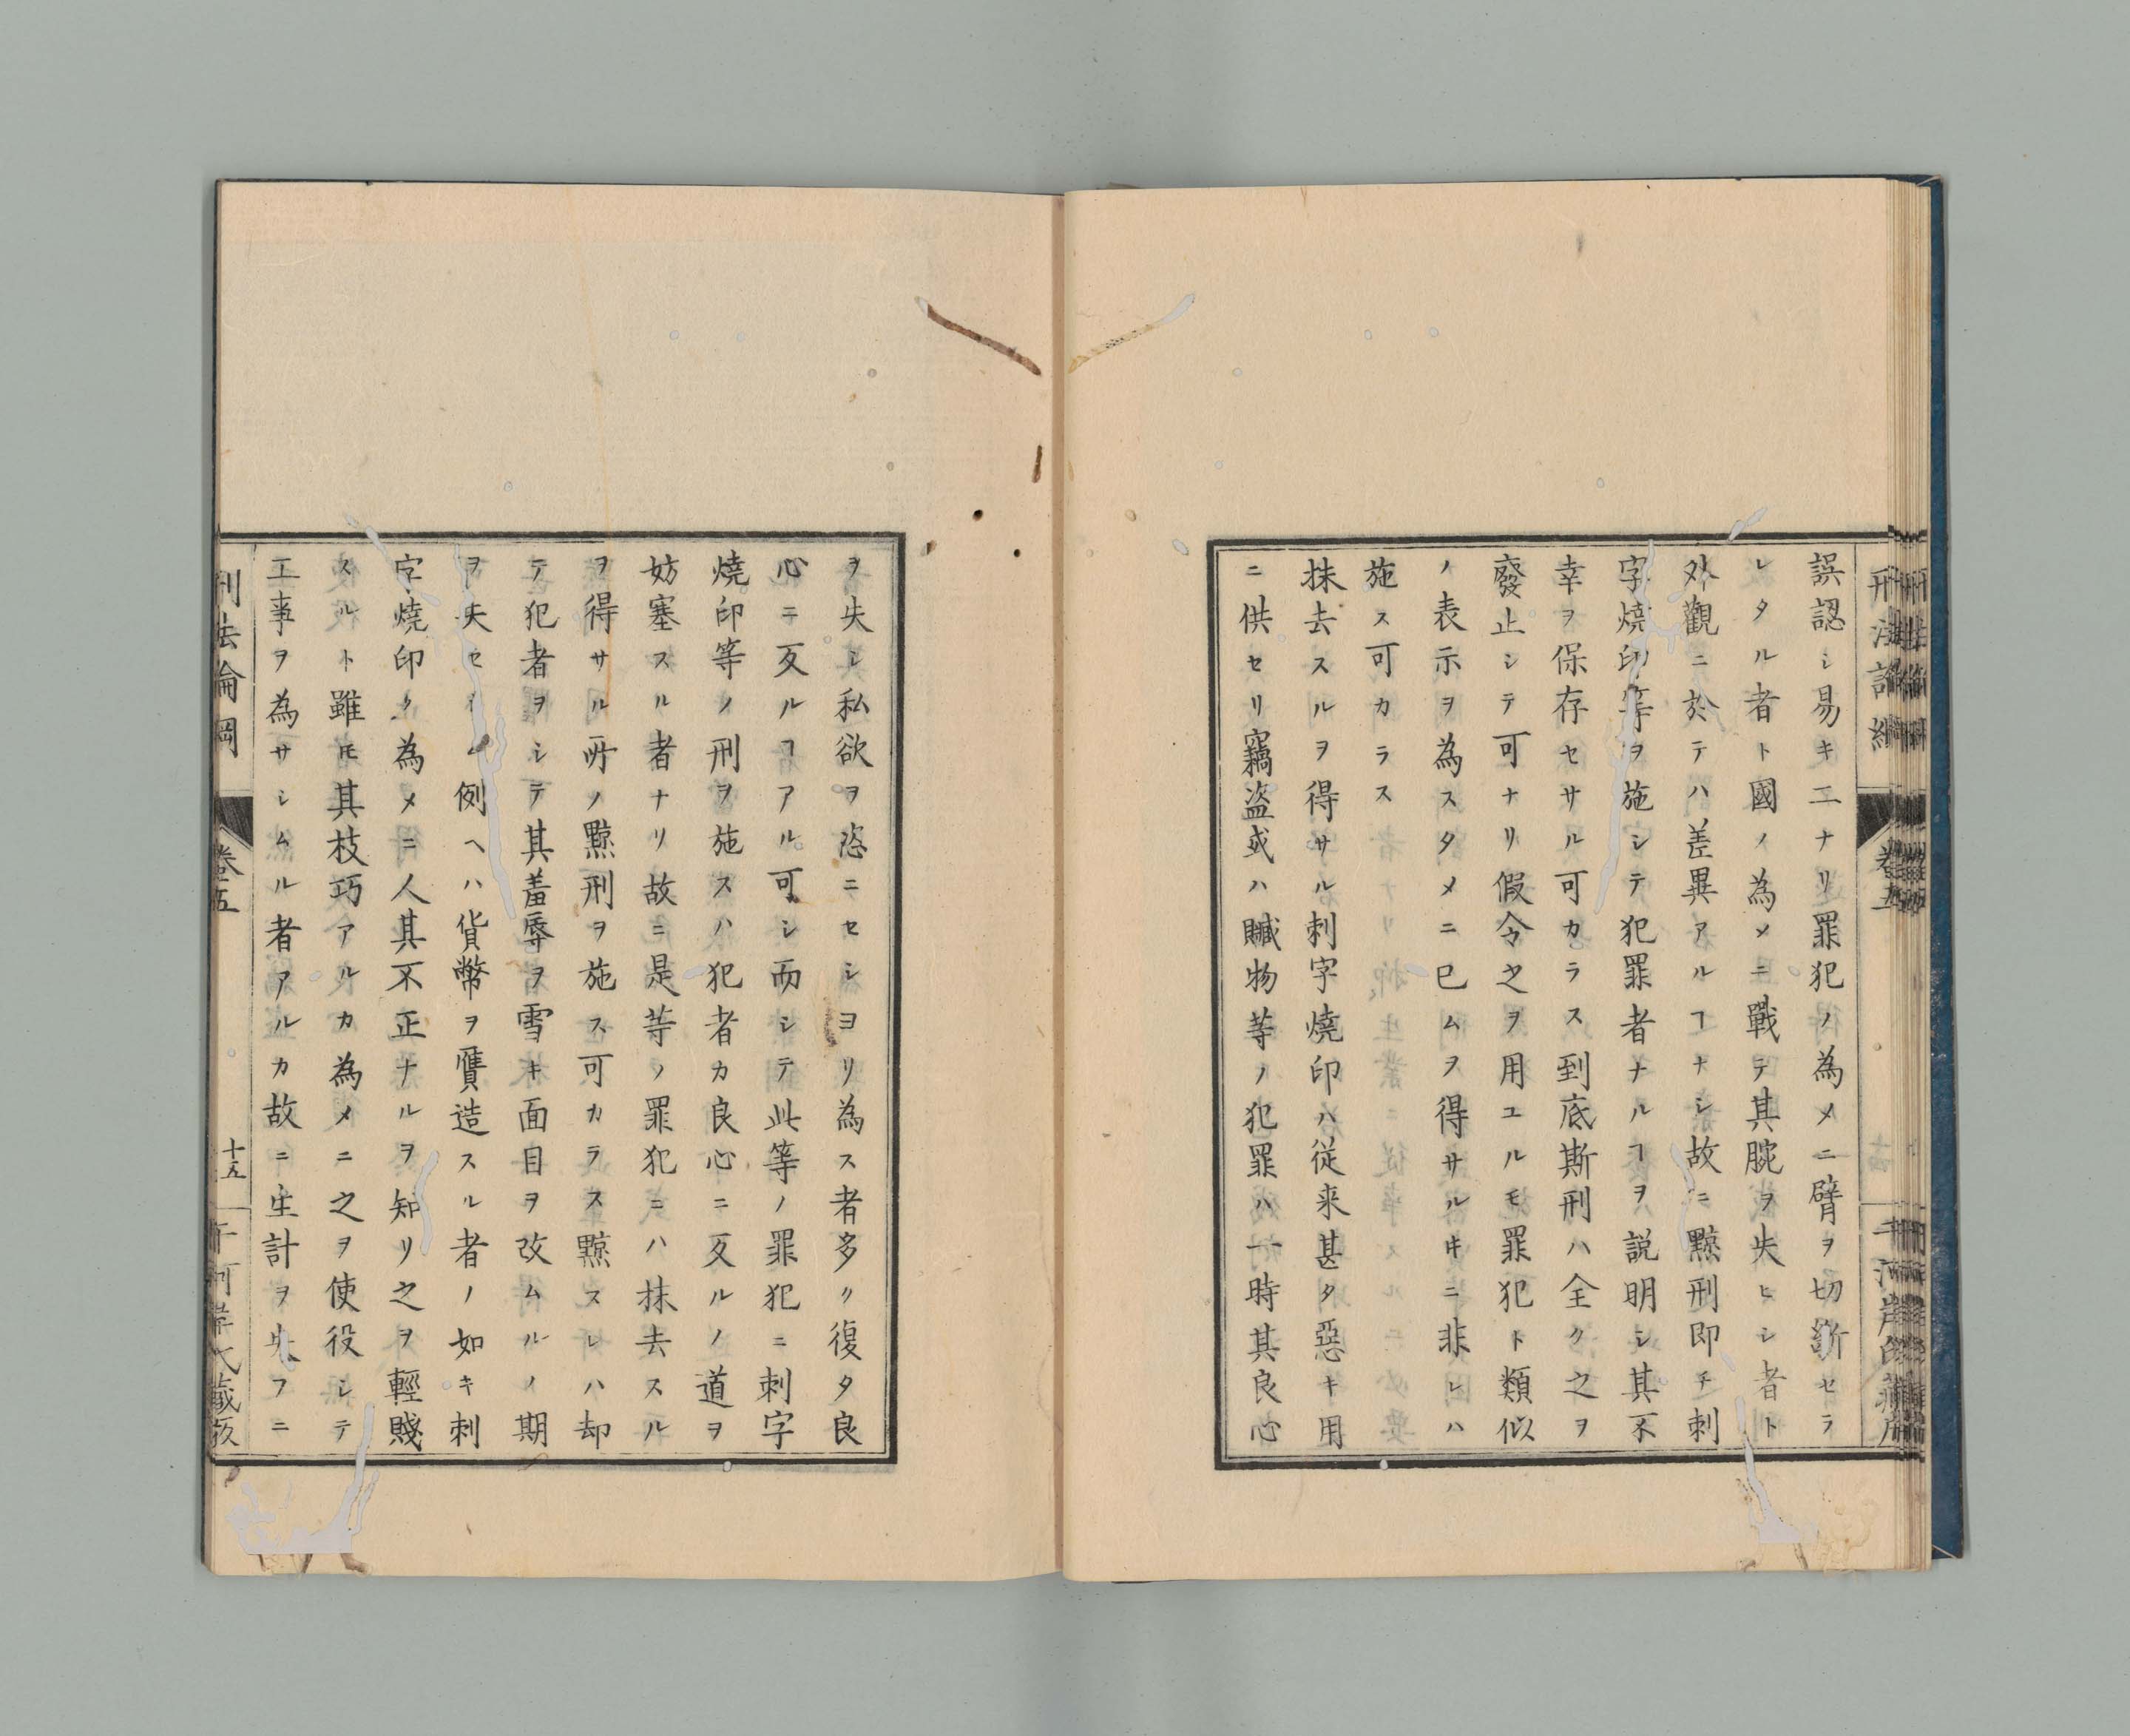 誤認シ易キ工ナリ罪犯ノ為メニ臂ヲ切斷セラ
レタル者ト國ノ為メニ戰テ其腕ヲ失ヒシ者ト
外觀ニ於テハ差異アルヿナシ故ニ黥刑即チ刺
字燒印等ヲ施シテ犯罪者ナルヿヲ説明シ其不
幸ヲ保存セサル可カラス到底斯刑ハ全ク之ヲ
廢止シテ可ナリ假令之ヲ用ユルモ罪犯ト類似
ノ表示ヲ為スタメニ已ムヲ得サルキニ非レハ
施ス可カラス
抹去スルヲ得サル刺字燒印ハ従来甚タ惡キ用
ニ供セリ竊盗或ハ贓物等ノ犯罪ハ一時其良心
ヲ失シ私欲ヲ恣ニセシヨリ為ス者多ク復タ良
心ニ反ルヿアル可シ而シテ此等ノ罪犯ニ刺字
燒印等ノ刑ヲ施スハ犯者カ良心ニ反ルノ道ヲ
妨塞スル者ナリ故ニ是等ノ罪犯ニハ抹去スル
ヲ得サル所ノ黥刑ヲ施ス可カラス黥スレハ却
テ犯者ヲシテ其羞辱ヲ雪キ面目ヲ改ムルノ期
ヲ失セシム例ヘハ貨幣ヲ贋造スル者ノ如キ刺
字燒印ク為メニ人其不正ナルヲ知リ之ヲ輕賤
スルト雖𪜈其枝巧アルカ為メニ之ヲ使役シテ
工事ヲ為サシムル者アルカ故ニ生計ヲ失フニ
刑法論綱 卷五 十五 千河岸氏藏版